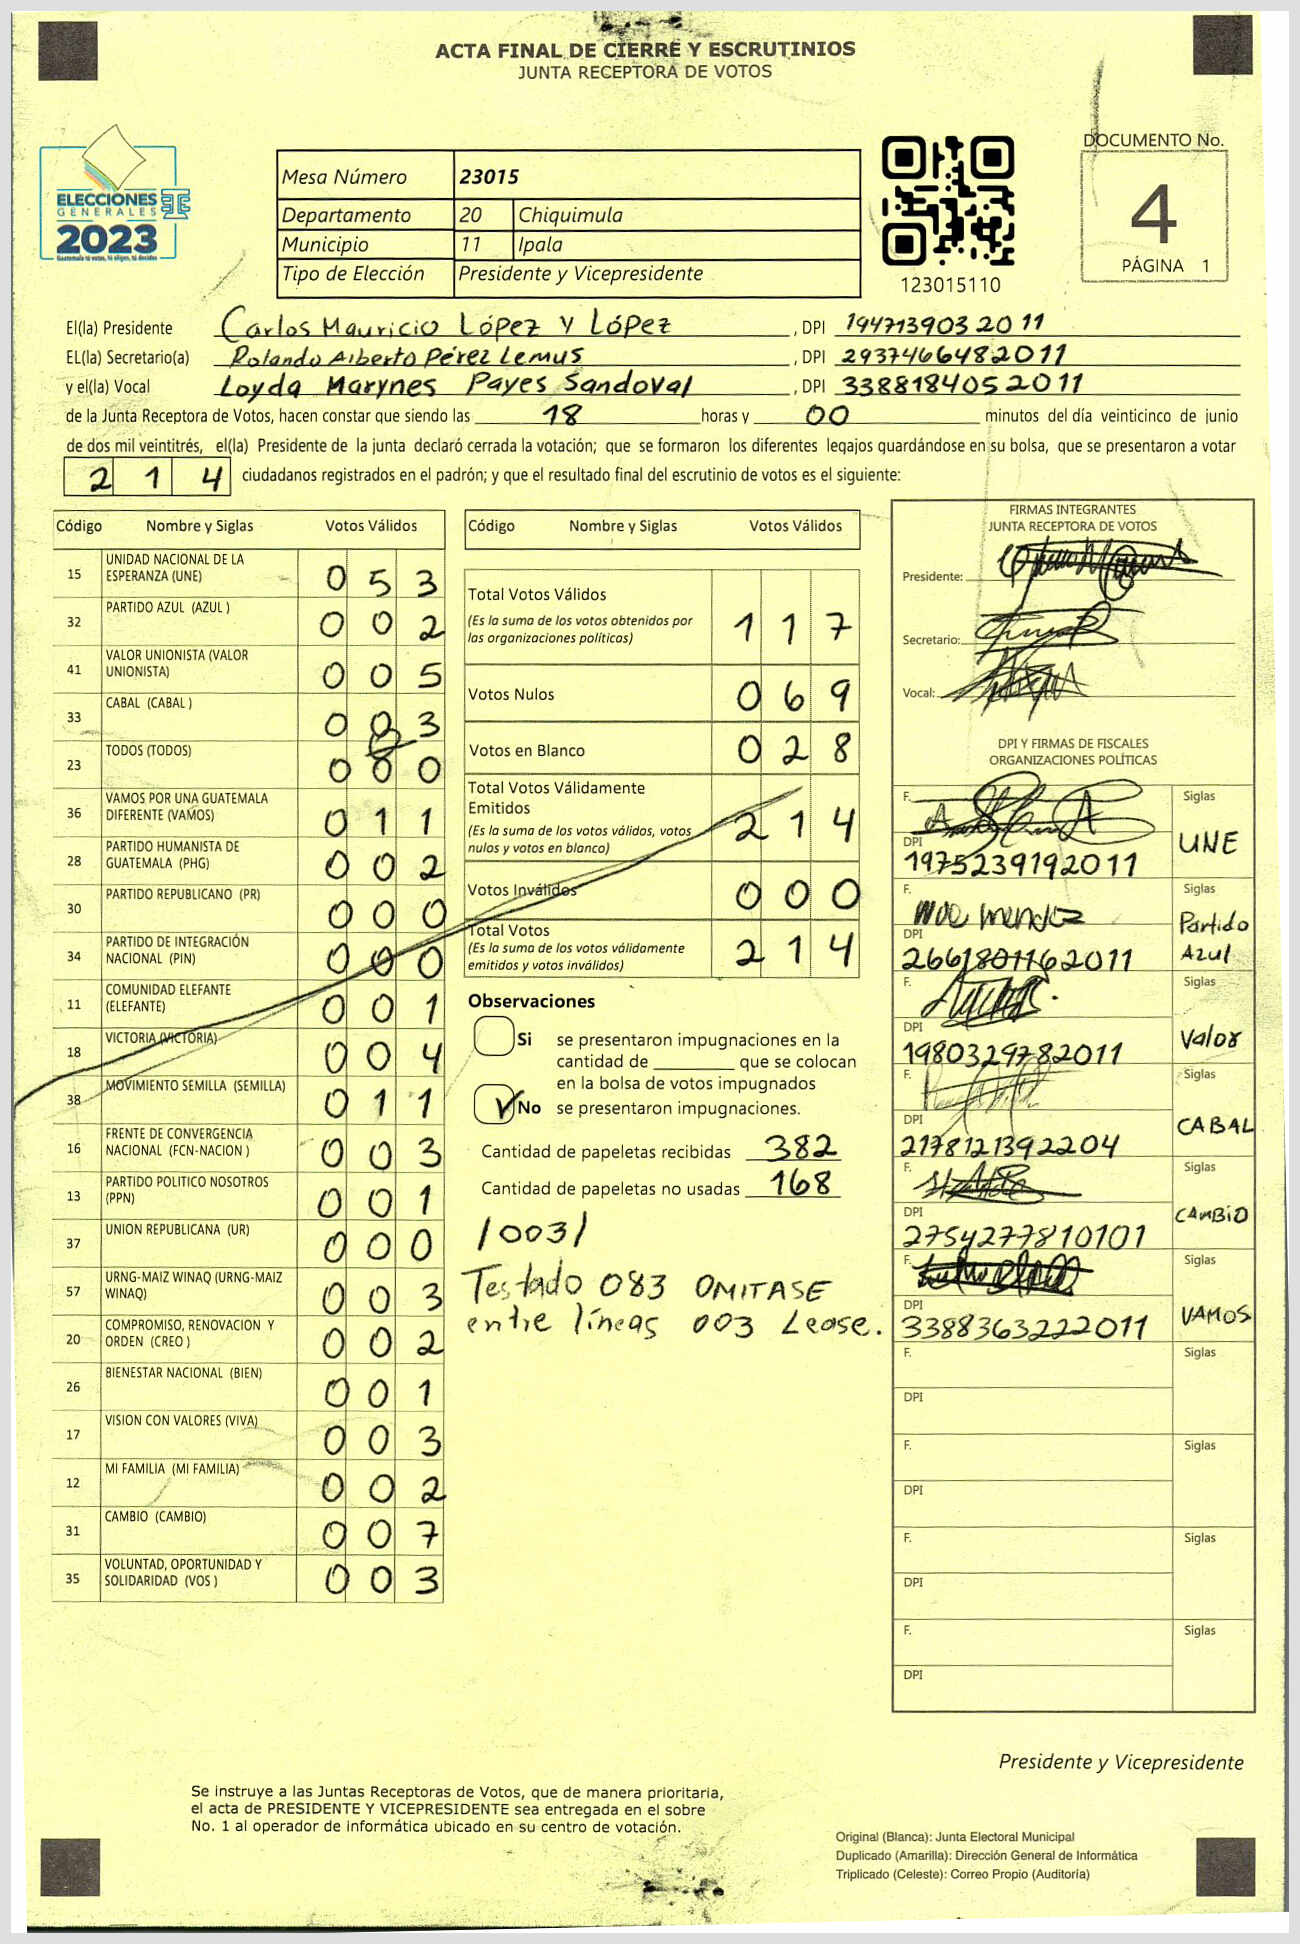 ACTA FINAL DE CIERRE Y ESCRUTINIOS
JUNTA RECEPTORA DE VOTOS
ELECCIONES
GENERALES
2023
Guatemala tú votas, tú eliges, tú decides
Mesa Número 23015
Departamento 20 Chiquimula
Municipio 11 Ipala
Tipo de Elección Presidente y Vicepresidente
123015110
DOCUMENTO No.
4
PÁGINA 1
El(la) Presidente Carlos Mauricio López y López, DPI 194713903 2011
EL(la) Secretario(a) Rolando Alberto Pérez Lemus, DPI 2937466482011
y el(la) Vocal Loyda Marynes Payes Sandoval, DPI 3388184052011
de la Junta Receptora de Votos, hacen constar que siendo las 18 horas y 00 minutos del día veinticinco de junio
de dos mil veintitrés, el(la) Presidente de la junta declaró cerrada la votación; que se formaron los diferentes legajos guardándose en su bolsa, que se presentaron a votar
2 1 4 ciudadanos registrados en el padrón; y que el resultado final del escrutinio de votos es el siguiente:
Código Nombre y Siglas Votos Válidos
15 UNIDAD NACIONAL DE LA ESPERANZA (UNE) 0 5 3
32 PARTIDO AZUL (AZUL ) 0 0 2
41 VALOR UNIONISTA (VALOR UNIONISTA) 0 0 5
33 CABAL (CABAL ) 0 0 3
23 TODOS (TODOS) 0 0 0
36 VAMOS POR UNA GUATEMALA DIFERENTE (VAMOS) 0 1 1
28 PARTIDO HUMANISTA DE GUATEMALA (PHG) 0 0 2
30 PARTIDO REPUBLICANO (PR) 0 0 0
34 PARTIDO DE INTEGRACIÓN NACIONAL (PIN) 0 0 0
11 COMUNIDAD ELEFANTE (ELEFANTE) 0 0 1
18 VICTORIA (VICTORIA) 0 0 4
38 MOVIMIENTO SEMILLA (SEMILLA) 0 1 1
16 FRENTE DE CONVERGENCIA NACIONAL (FCN-NACION ) 0 0 3
13 PARTIDO POLITICO NOSOTROS (PPN) 0 0 1
37 UNION REPUBLICANA (UR) 0 0 0
57 URNG-MAIZ WINAQ (URNG-MAIZ WINAQ) 0 0 3
20 COMPROMISO, RENOVACION Y ORDEN (CREO ) 0 0 2
26 BIENESTAR NACIONAL (BIEN) 0 0 1
17 VISION CON VALORES (VIVA) 0 0 3
12 MI FAMILIA (MI FAMILIA) 0 0 2
31 CAMBIO (CAMBIO) 0 0 7
35 VOLUNTAD, OPORTUNIDAD Y SOLIDARIDAD (VOS ) 0 0 3
Código Nombre y Siglas Votos Válidos
Total Votos Válidos 1 1 7
(Es la suma de los votos obtenidos por
las organizaciones políticas)
Votos Nulos 0 6 9
Votos en Blanco 0 2 8
Total Votos Válidamente
Emitidos 2 1 4
(Es la suma de los votos válidos, votos
nulos y votos en blanco)
Votos Inválidos 0 0 0
Total Votos 2 1 4
(Es la suma de los votos válidamente
emitidos y votos inválidos)
Observaciones
Si se presentaron impugnaciones en la
cantidad de ________ que se colocan
en la bolsa de votos impugnados
No se presentaron impugnaciones.
Cantidad de papeletas recibidas 382
Cantidad de papeletas no usadas 168
/003/
Testado 083 OMITASE
entre líneas 003 Lease.
FIRMAS INTEGRANTES
JUNTA RECEPTORA DE VOTOS
Presidente:
Secretario:
Vocal:
DPI Y FIRMAS DE FISCALES
ORGANIZACIONES POLÍTICAS
F. Siglas
DPI 1975239192011 UNE
F. Siglas
DPI 2661801162011 Partido Azul
F. Siglas
DPI 1980329782011 Valor
F. Siglas
DPI 2178121392204 CABAL
F. Siglas
DPI 2754277810101 CAMBIO
F. Siglas
DPI 3388363222011 VAMOS
F. Siglas
DPI
F. Siglas
DPI
F. Siglas
DPI
F. Siglas
DPI
Presidente y Vicepresidente
Se instruye a las Juntas Receptoras de Votos, que de manera prioritaria,
el acta de PRESIDENTE Y VICEPRESIDENTE sea entregada en el sobre
No. 1 al operador de informática ubicado en su centro de votación.
Original (Blanca): Junta Electoral Municipal
Duplicado (Amarilla): Dirección General de Informática
Triplicado (Celeste): Correo Propio (Auditoría)